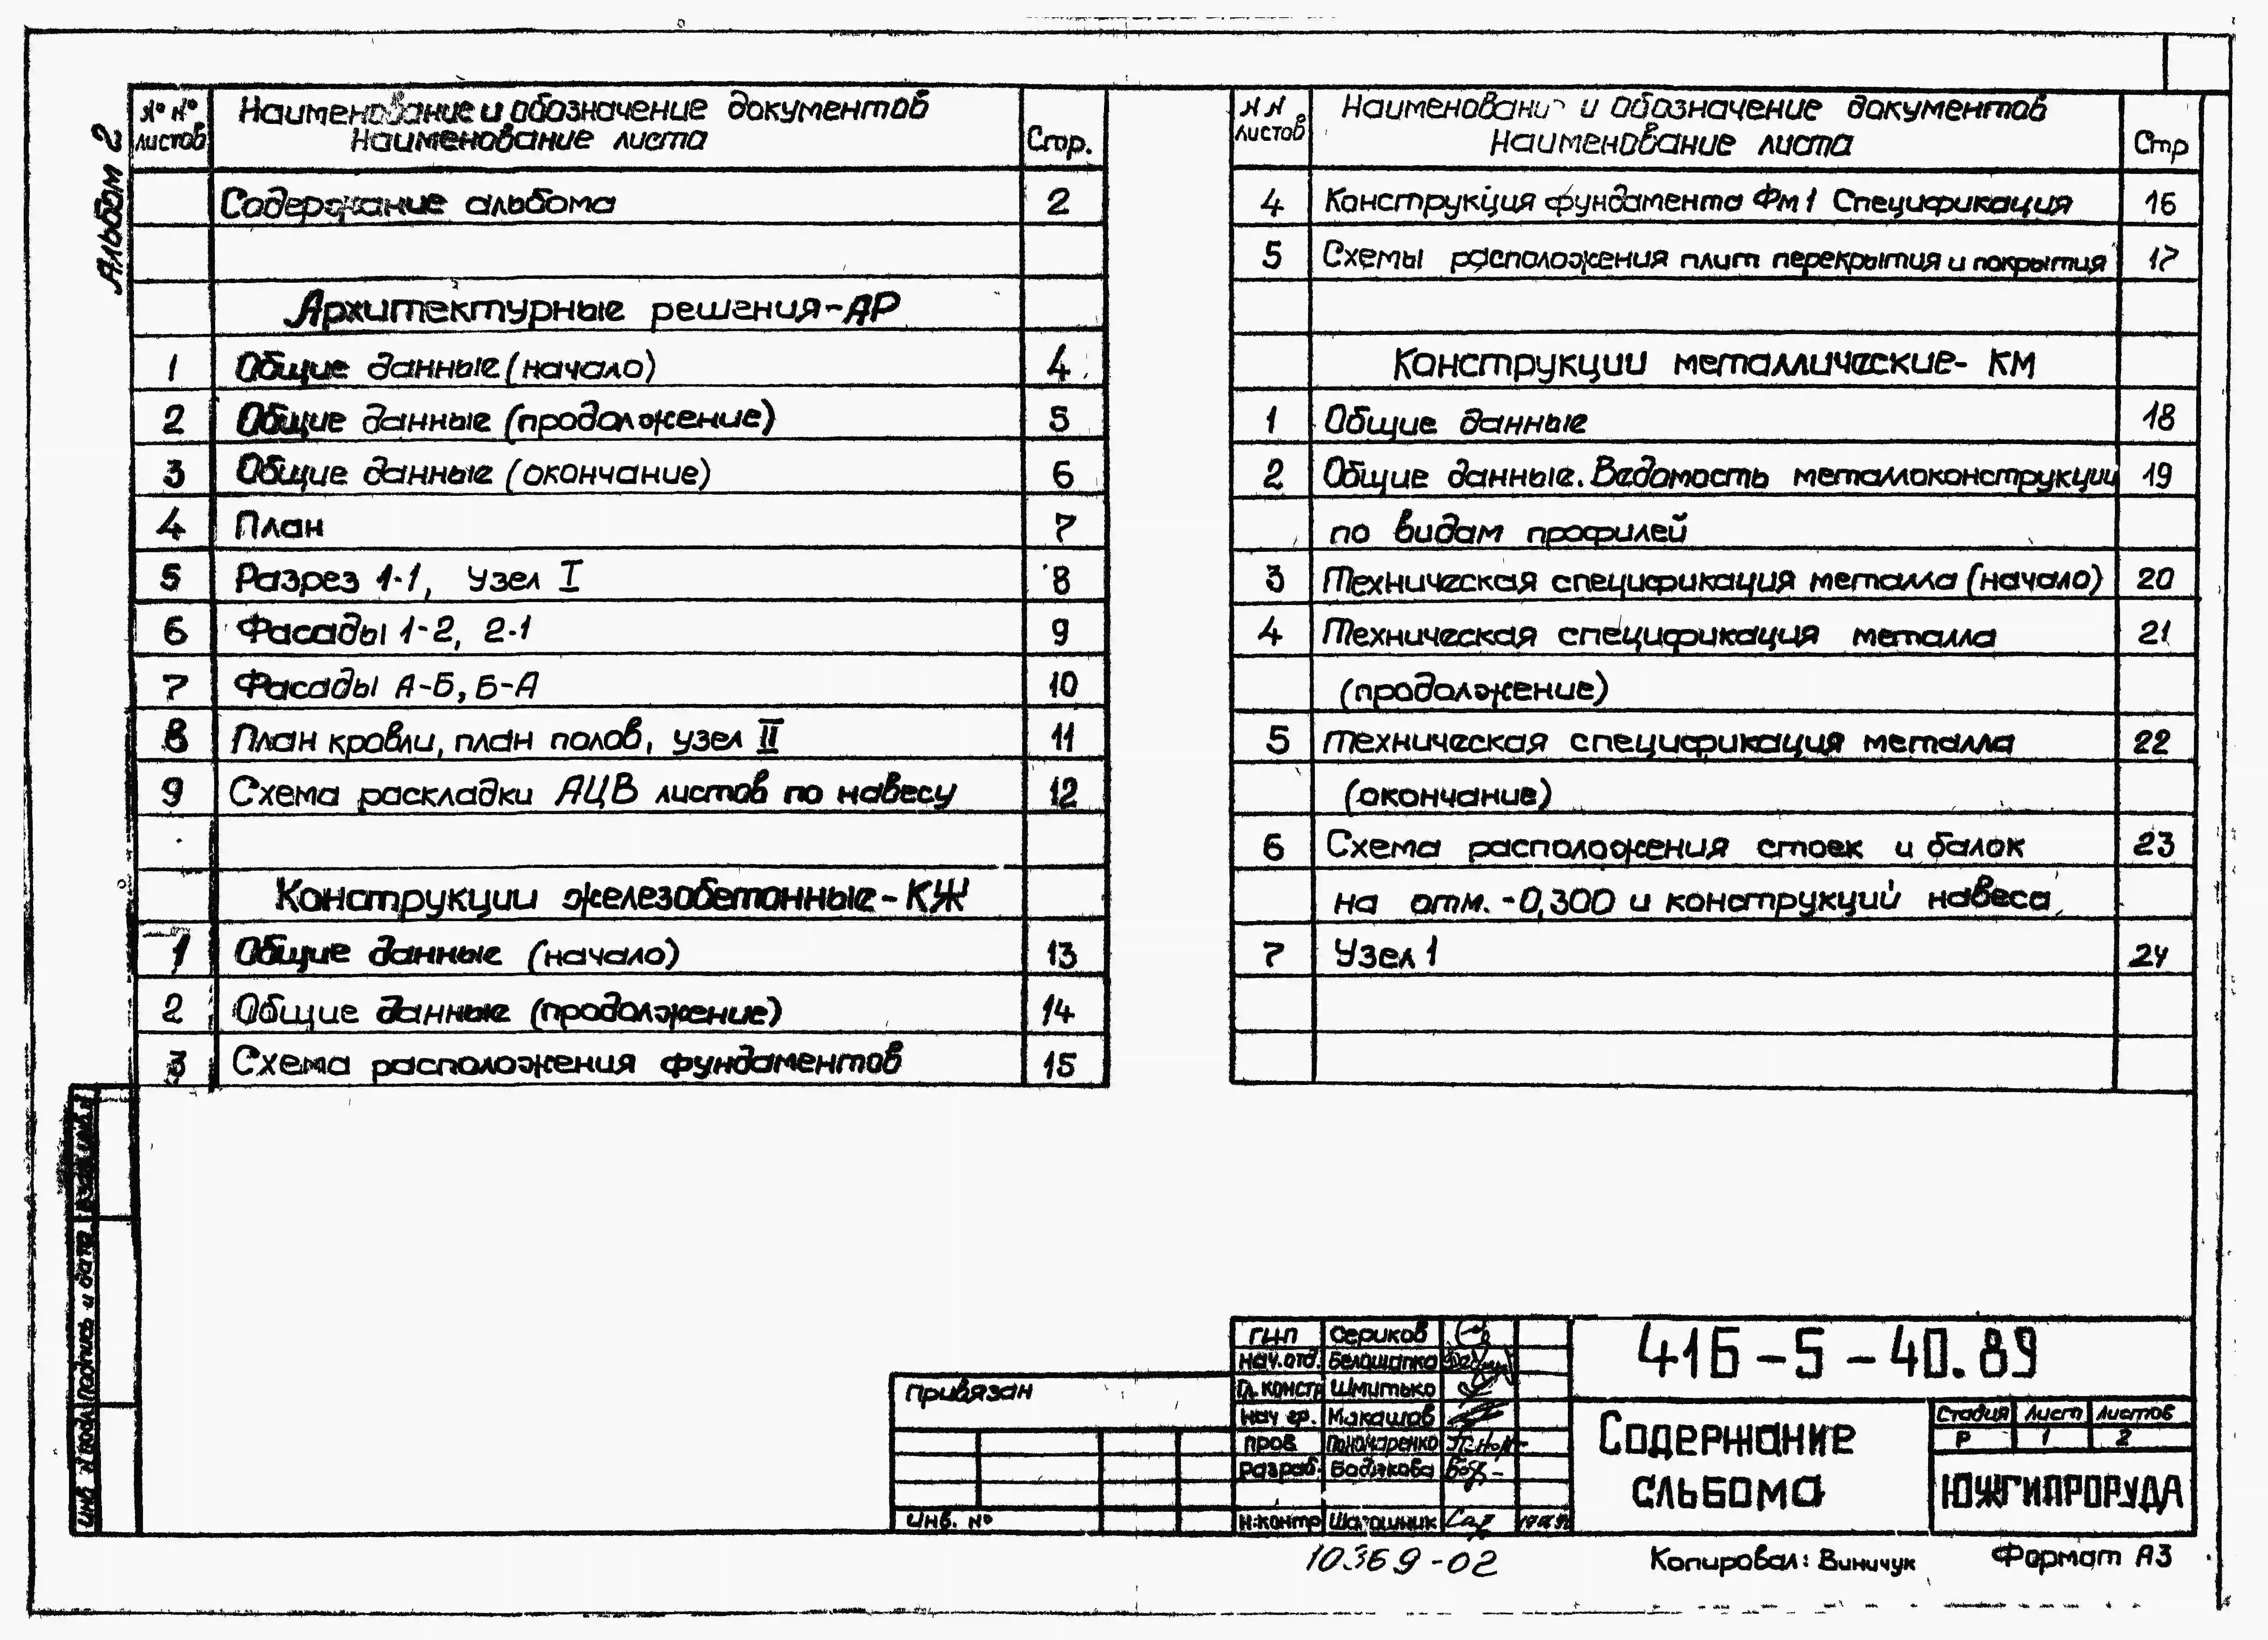 Альбом 2
№ №
листов
Наименование и обозначение документов
Наименование листа
Стр.
Содержание альбома 2
Архитектурные решения-АР
1 Общие данные (начало) 4
2 Общие данные (продолжение) 5
3 Общие данные (окончание) 6
4 План 7
5 Разрез 1-1, Узел I 8
6 Фасады 1-2, 2-1 9
7 Фасады А-Б, Б-А 10
8 План кровли, план полов, узел II 11
9 Схема раскладки АЦВ листов по навесу 12
Конструкции железобетонные-КЖ
1 Общие данные (начало) 13
2 Общие данные (продолжение) 14
3 Схема расположения фундаментов 15
N N
листов
Наименование и обозначение документов
Наименование листа
Стр
4 Конструкция фундамента Фм1 Спецификация 16
5 Схемы расположения плит перекрытия и покрытия 17
Конструкции металлические- КМ
1 Общие данные 18
2 Общие данные. Ведомость металлоконструкции 19
по видам профилей
3 Техническая спецификация металла (начало) 20
4 Техническая спецификация металла 21
(продолжение)
5 Техническая спецификация металла 22
(окончание)
6 Схема расположения стоек и балок 23
на отм. -0,300 и конструкций навеса
7 Узел 1 24
Инв. N подл. Подпись и дата
Привязан
Инв. №
ГИП Сериков
Нач.отд. Белошапка
Гл. констр Шмитько
Нач гр. Макашов
Пров Пономаренко
Разраб.
Н.контр
416-5-40.89
Содержание
альбома
Стадия Лист Листов
Р 1 2
ЮЖГИПРОРУДА
10369-02
Копировал: Виничук
Формат А3